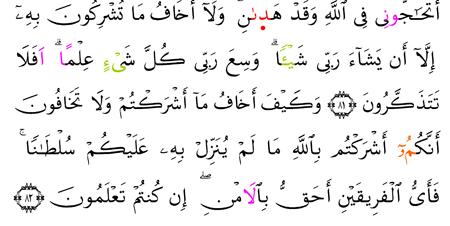 أَتُحَٰٓجُّونِى فِى اللَّهِ وَقَدْ هَدَىٰنِ وَلَآ أَخَافُ مَا تُشْرِكُونَ بِهِۦٓ
إِلَّآ أَن يَشَآءَ رَبِّى شَيْـًٔا ۗ وَسِعَ رَبِّى كُلَّ شَىْءٍ عِلْمًا ۗ اَفَلَا
تَتَذَكَّرُونَ ٨١ وَكَيْفَ أَخَافُ مَآ أَشْرَكْتُمْ وَلَا تَخَافُونَ
أَنَّكُمُۥٓ أَشْرَكْتُم بِاللَّهِ مَا لَمْ يُنَزِّلْ بِهِۦ عَلَيْكُمْ سُلْطَٰنًا ۚ
فَأَىُّ الْفَرِيقَيْنِ أَحَقُّ بِالَامْنِ ۖ إِن كُنتُمْ تَعْلَمُونَ ٨٢